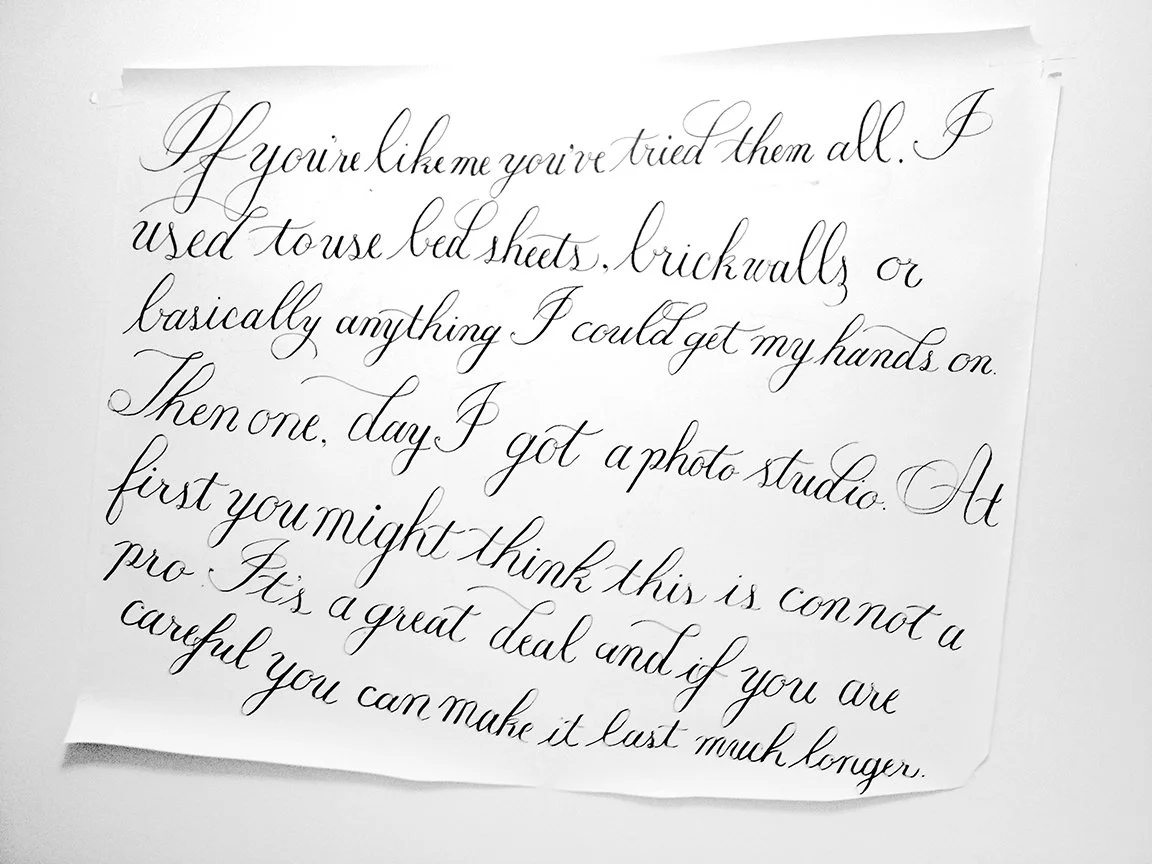 If you're like me you've tried them all. I
used to use bed sheets, brick walls or
basically anything I could get my hands on.
Then one, day I got a photo studio. At
first you might think this is con not a
pro. It's a great deal and if you are
careful you can make it last much longer.